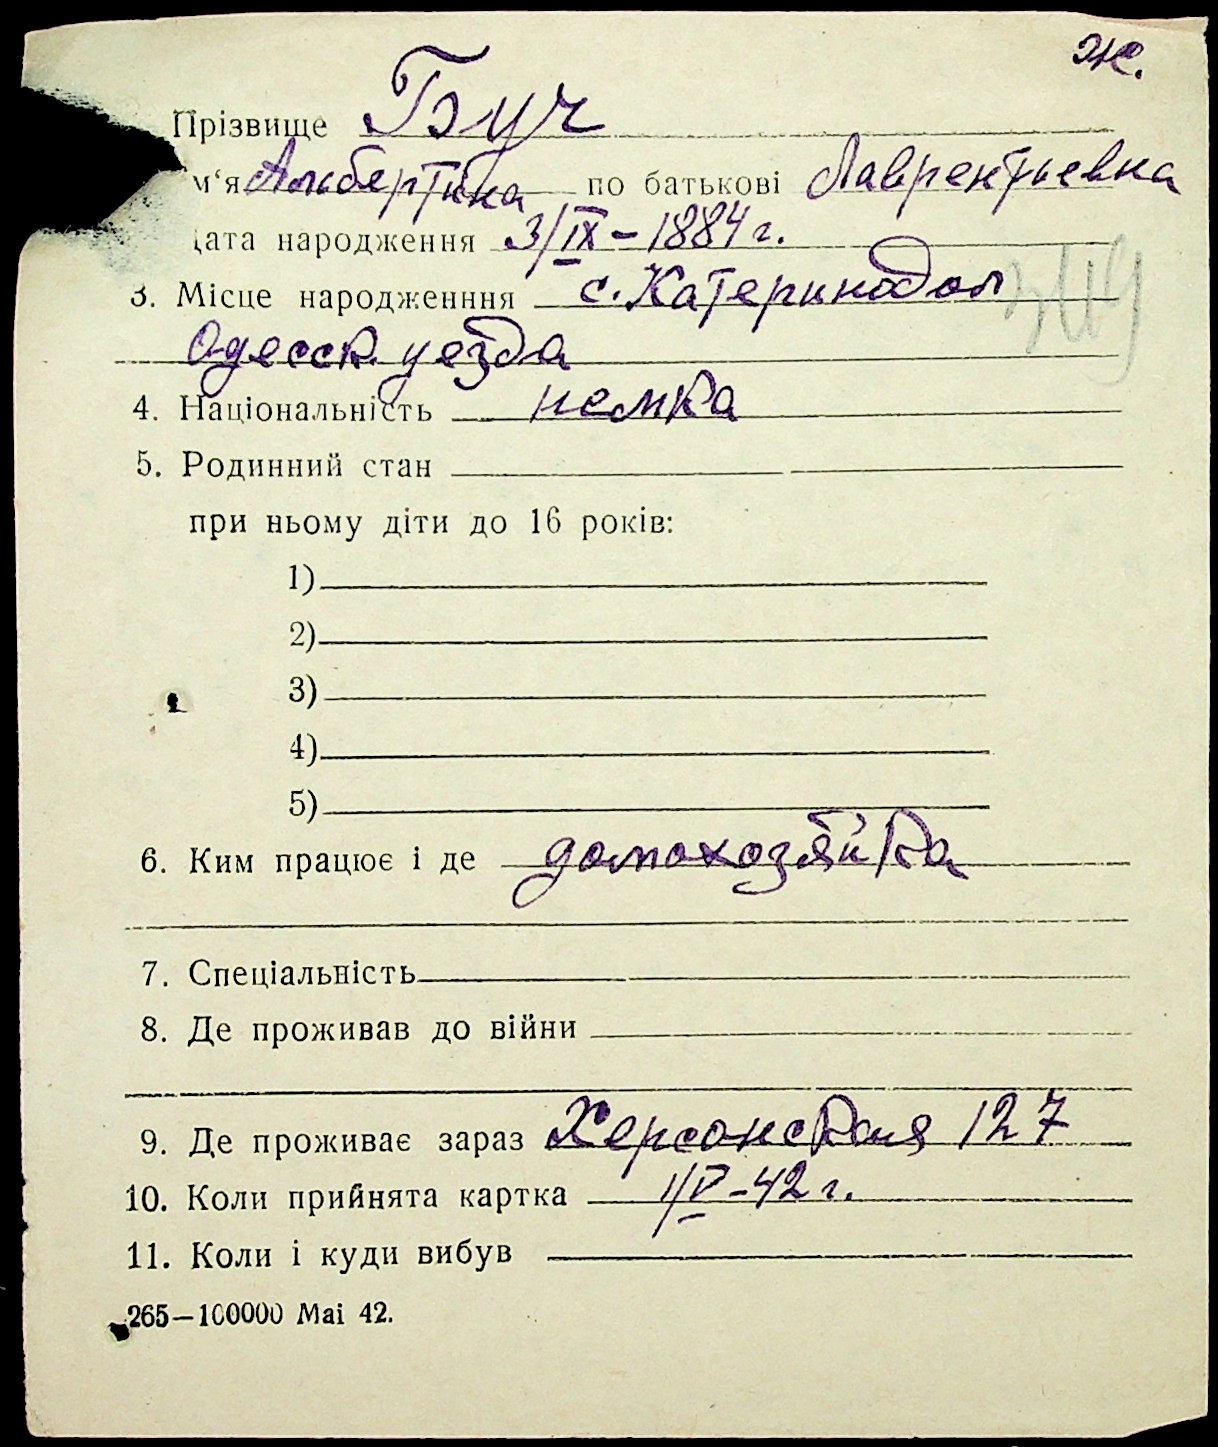 ж.
Прізвище Буч
м‘я Альбертина по батькові Лаврентьевна
ата народження 3/IX – 1884 г.
3. Місце народженння с. Катеринодол
Одесск. уезда
4. Національність немка
5. Родинний стан
при ньому діти до 16 років:
1)
2)
3)
4)
5)
6. Ким працює і де домохозяйка
7. Спеціальність
8. Де проживав до війни
9. Де проживає зараз Херсонская 127
10. Коли прийнята картка 1/V – 42 г.
11. Коли і куди вибув
265—100000 Mai 42.